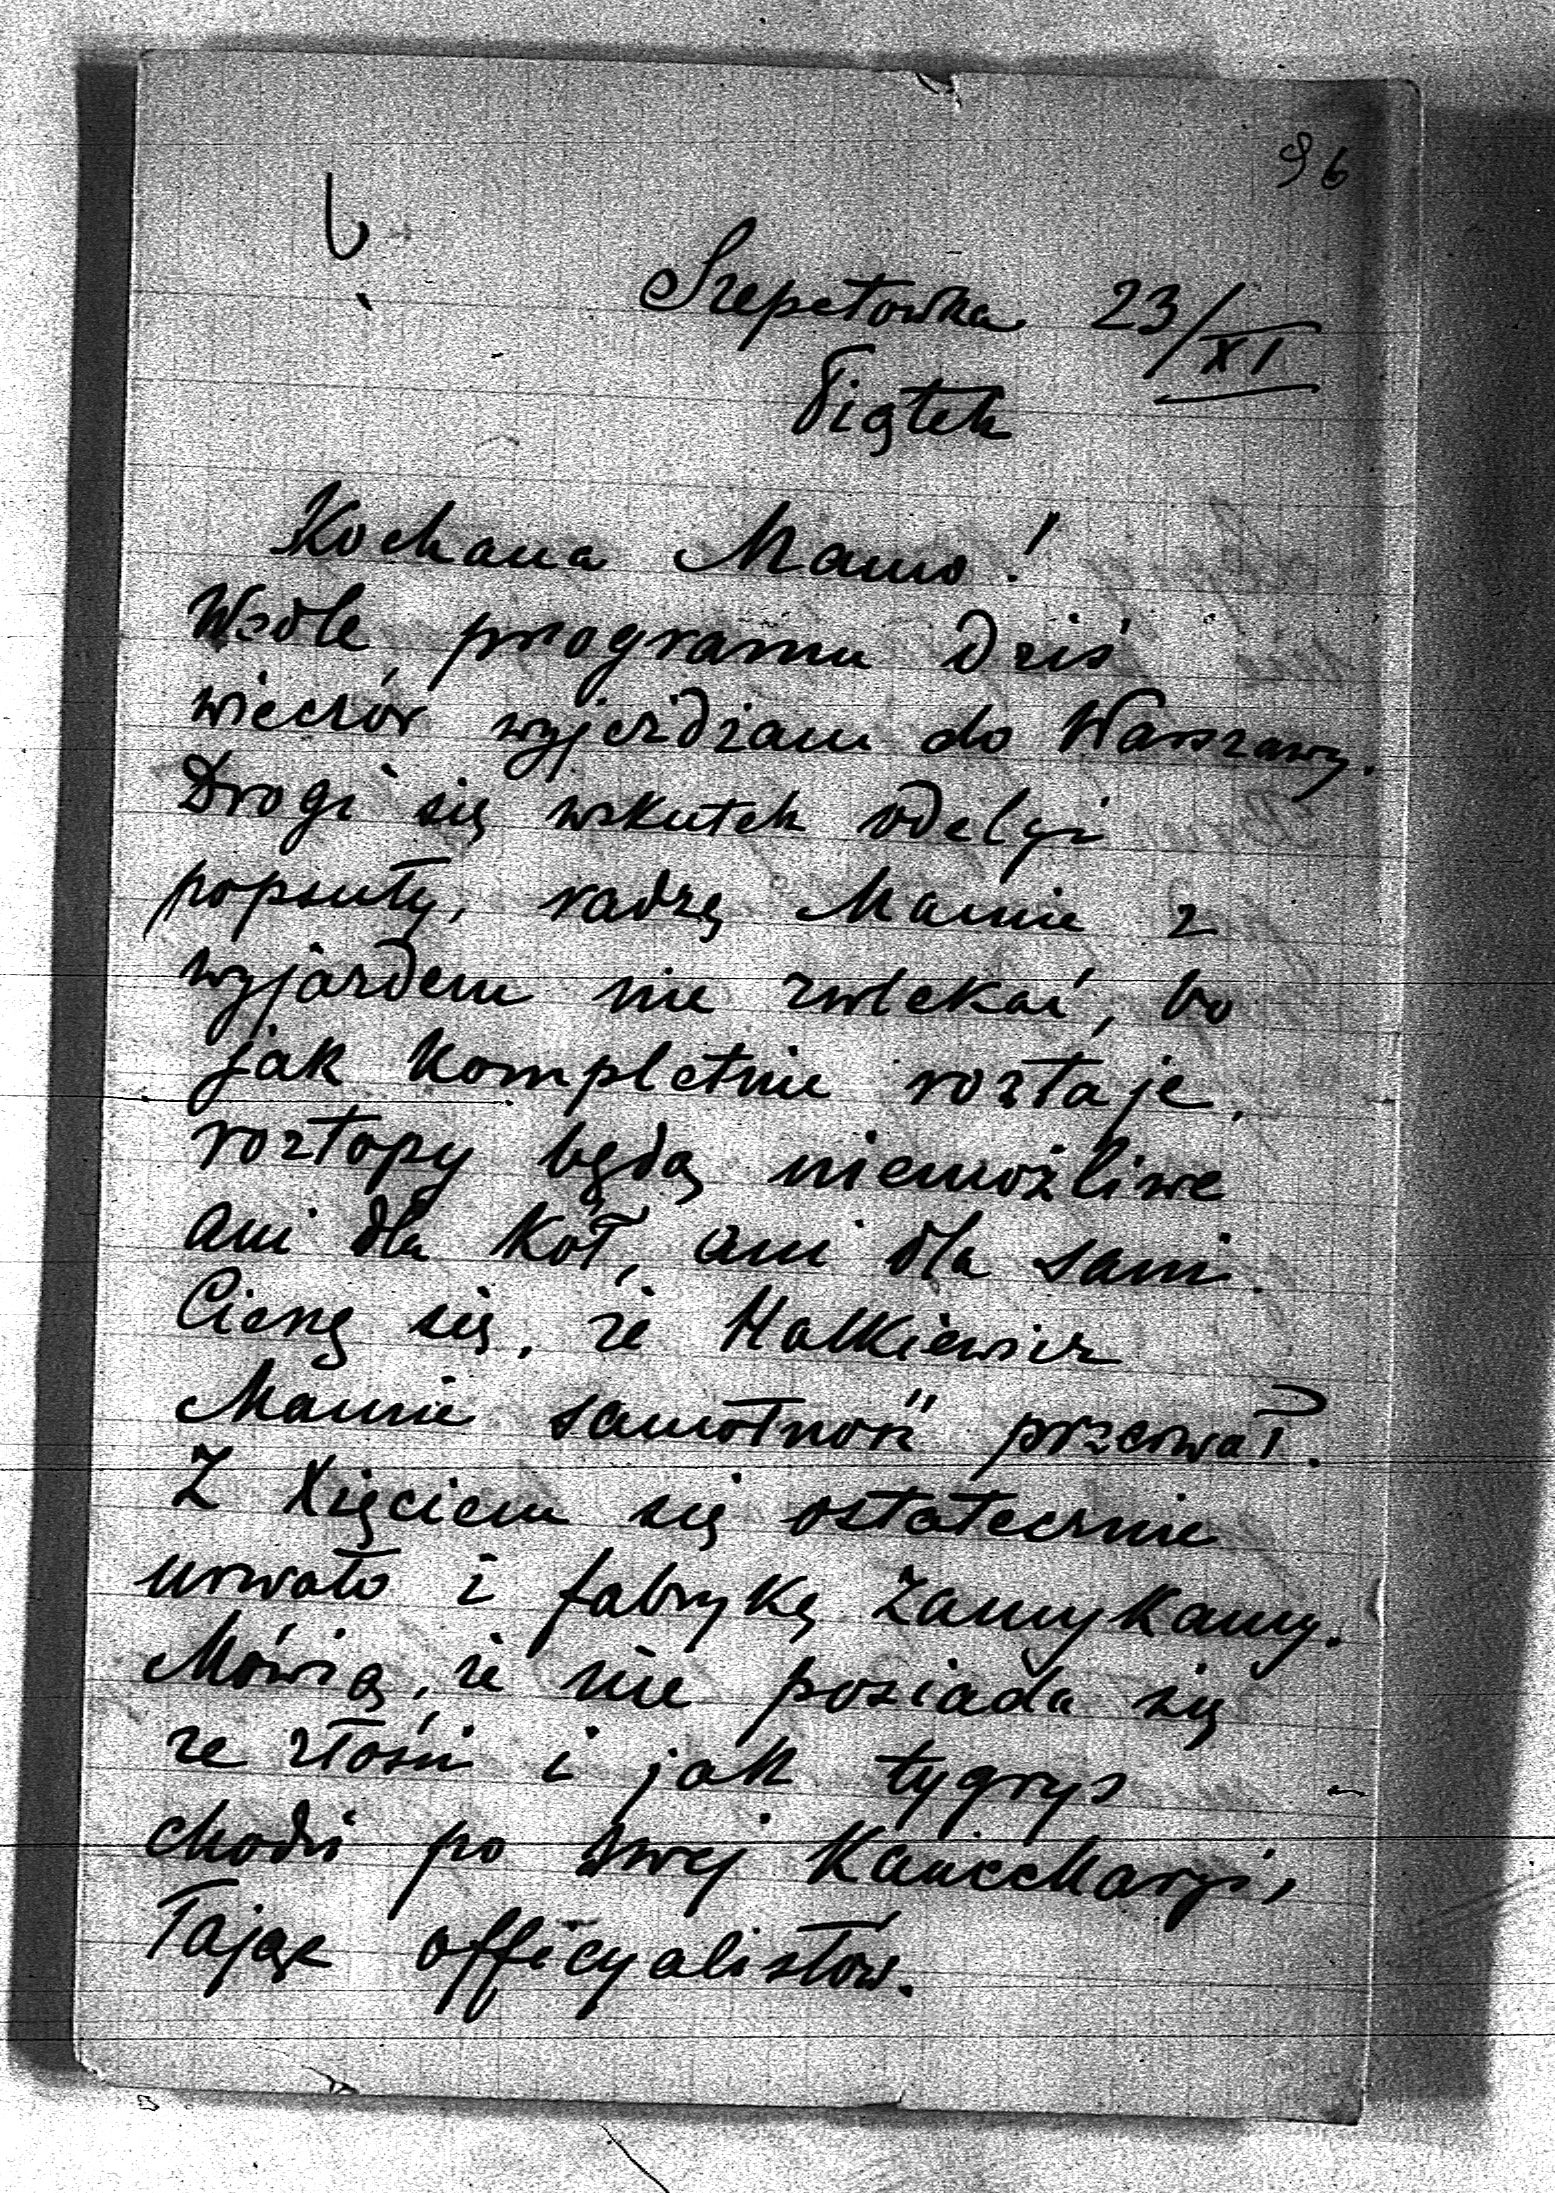 96
Szepetowka 23/XI
Piątek
Kochana Mamo!
Wedle programu dziś
wieczór wyjeżdżam do Warszawy.
Drogi się wskutek odelgi
popsuły, radzę Mamie z
wyjazdem nie zwlekać, bo
jak kompletnie roztaje,
roztopy będą niemożliwe
ani dla kół, ani dla sani.
Cieszę się, że Małkiewicz
Mamie samotność przerwał.
Z Xięciem się ostatecznie
urwało i fabrykę zamykamy.
Mówią, że nie posiada się
ze złości i jak tygrys
chodzi po swej kancellaryi,
łając officyalistów.